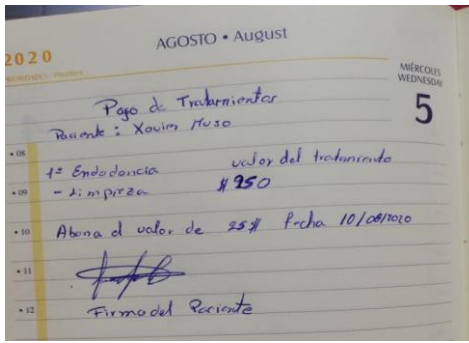 2020
AGOSTO • August
MIÉRCOLES
WEDNESDAY
5
Pago de Tratamientos
Paciente : Xavier Muso
• 08
1= Endodoncia valor del tratamiento
• 09
- Limpieza $ 250
• 10
Abona el valor de 25$ fecha 10/08/2020
• 11
• 12
Firma del Paciente